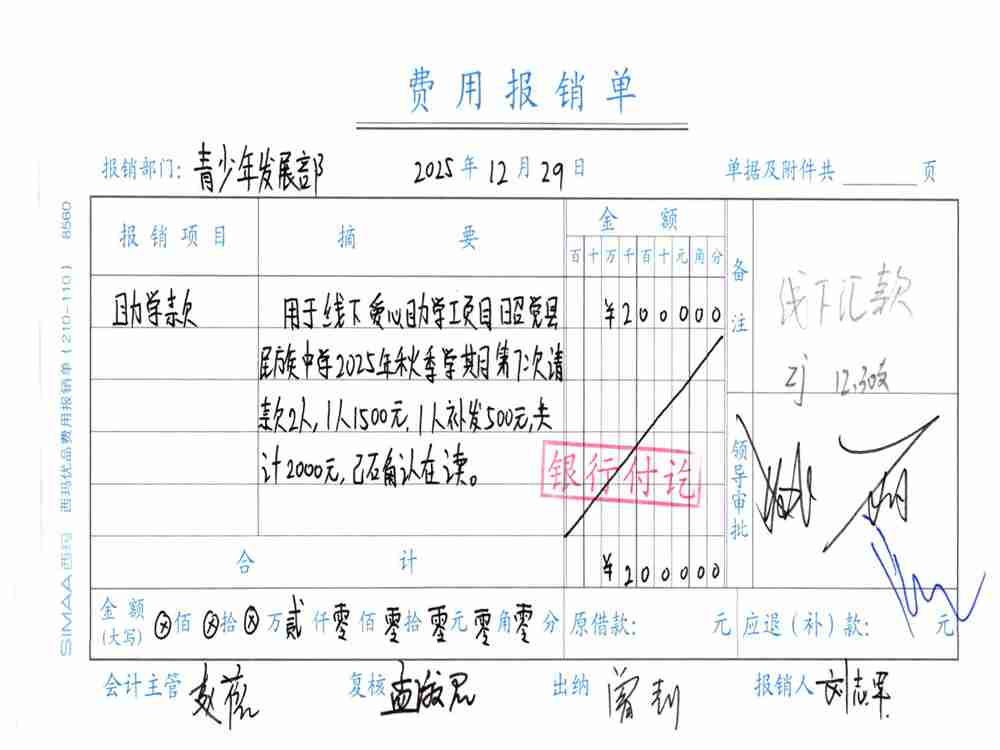 费用报销单
报销部门: 青少年发展部 2025年12月29日 单据及附件共 页
报销项目 摘要 金额 备注
百十万千百十元角分
助学款 用于线下爱心助学工项目昭觉县 ¥200000
民族中学2025年秋季学期第7次请
款2人,1人1500元,1人补发500元,共
计2000元,已确认在读。
线下汇款
zj 12.30
银行付讫
领导审批
合计 ¥200000
金额(大写) ⊗佰⊗拾⊗万贰仟零佰零拾零元零角零分 原借款: 元 应退(补)款: 元
会计主管 复核 出纳 报销人 刘志军
SIMAA 西玛 西玛优品费用报销单(210-110) 8560